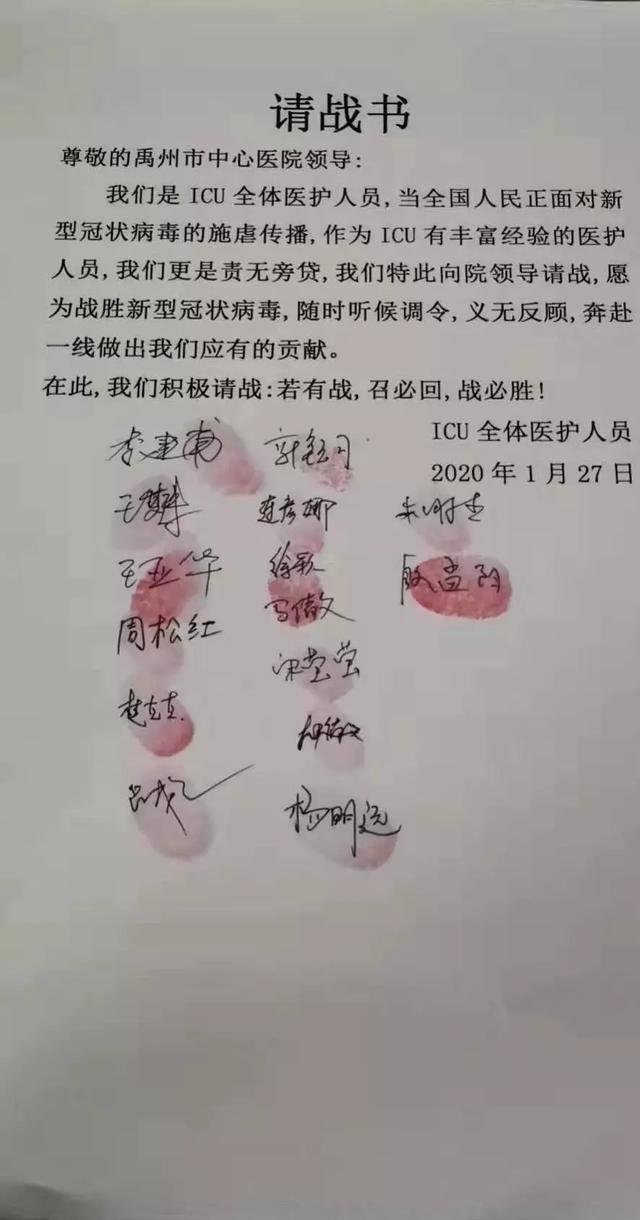 请战书
尊敬的禹州市中心医院领导:
我们是 ICU 全体医护人员,当全国人民正面对新
型冠状病毒的施虐传播,作为 ICU 有丰富经验的医护
人员,我们更是责无旁贷,我们特此向院领导请战,愿
为战胜新型冠状病毒,随时听候调令,义无反顾,奔赴
一线做出我们应有的贡献。
在此,我们积极请战:若有战,召必回,战必胜!
ICU 全体医护人员
2020 年 1 月 27 日
李建甫
王亚华
徐歌
周松红
宋莹莹
杨明远